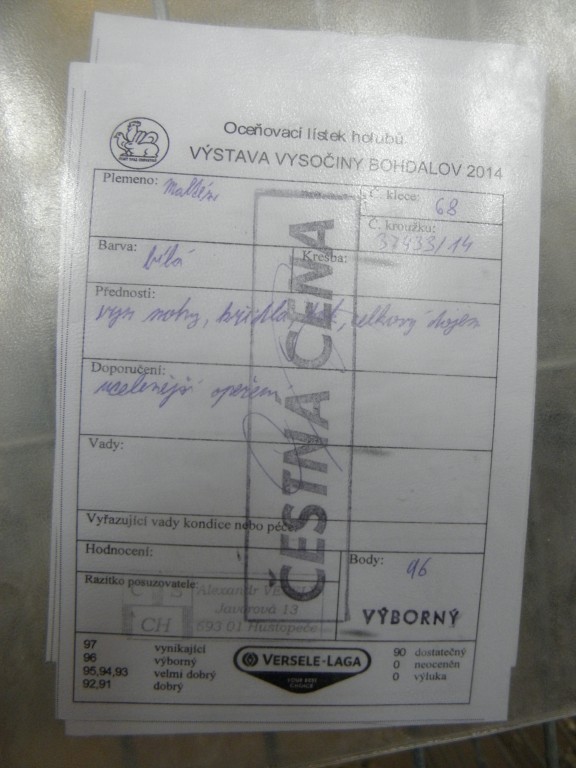 Oceňovací lístek holubů
VÝSTAVA VYSOČINY BOHDALOV 2014
Plemeno:
Č. klece: 68
Č. kroužku:
37433/14
Barva: bílá Kresba:
Přednosti:
nohy, křídla, celkový dojem
Doporučení:
ucelenější opeření
Vady:
Vyřazující vady kondice nebo péče:
Hodnocení:
Body: 96
VÝBORNÝ
Razítko posuzovatele
Alexandr
Javorová 13
CH 693 01 Hustopeče
ČESTNÁ CENA
97 vynikající
96 výborný
95,94,93 velmi dobrý
92,91 dobrý
VERSELE-LAGA
90 dostatečný
0 neoceněn
0 výluka